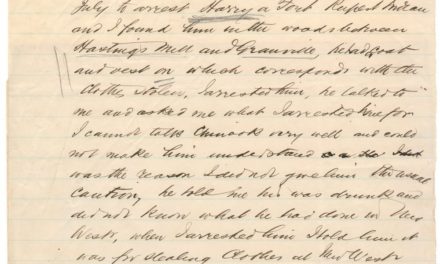 July to arrest Harry a Fort Rupert Indian
and I found him in the woods between
Hastings Mill and Granville, he had coat
and vest on which corresponds with the
Clothes stolen, I arrested him, he talked to
me and asked me what I arrested him for
I cannot talk Chinook very well and could
not make him understand
was the reason I did not give him the usual
caution, he told me he was drunk and
did not know what he had done in New
Westr, when I arrested him I told him it
was for stealing Clothes at New Westr